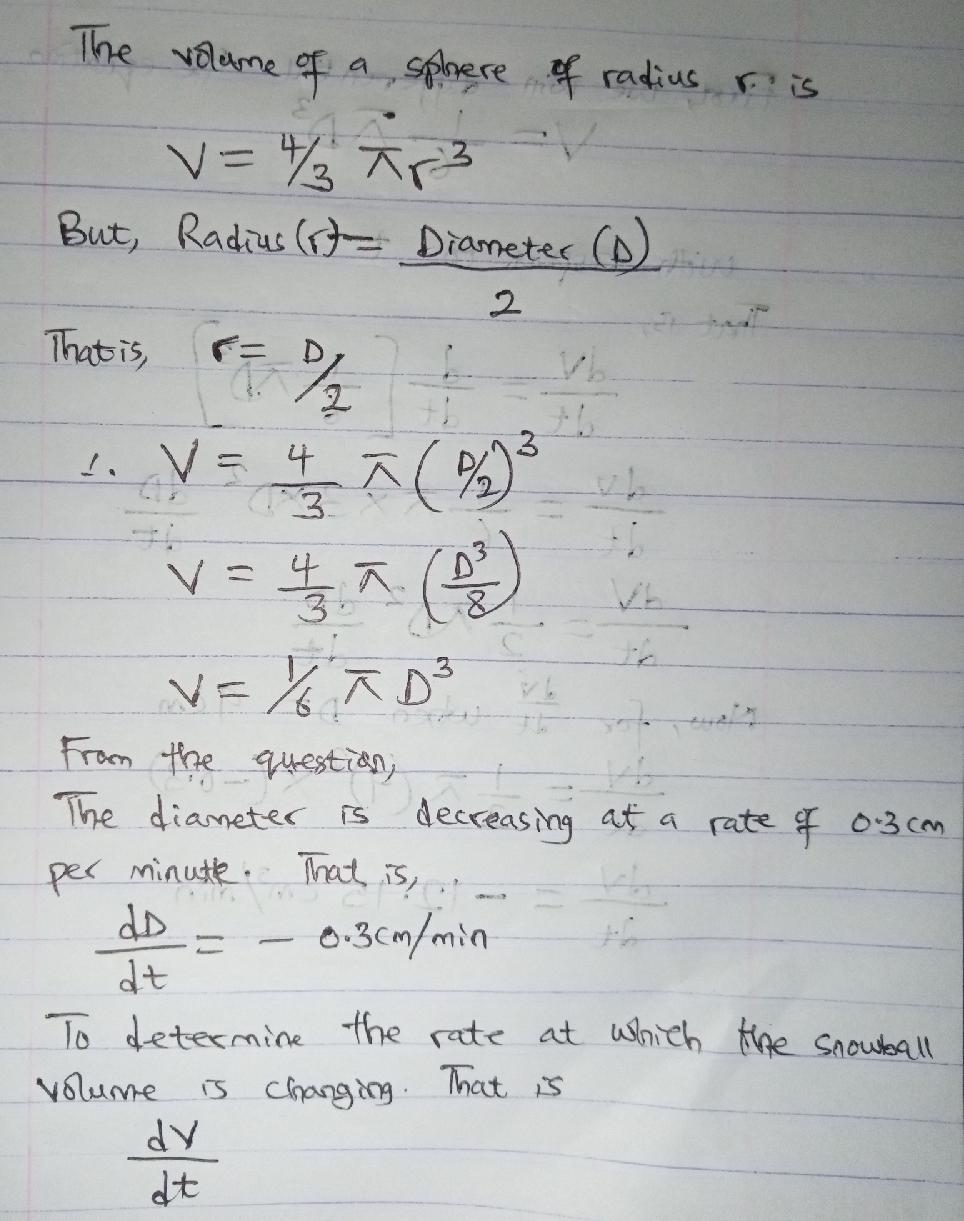 The volume of a sphere of radius r is
V = 4/3 πr³
But, Radius (r) = Diameter (D)
2
That is, r = D/2
∴ V = 4/3 π (D/2)³
V = 4/3 π (D³/8)
V = 1/6 π D³
From the question,
The diameter is decreasing at a rate of 0.3 cm
per minute. That is,
dD/dt = - 0.3cm/min
To determine the rate at which the snowball
volume is changing. That is
dV
dt